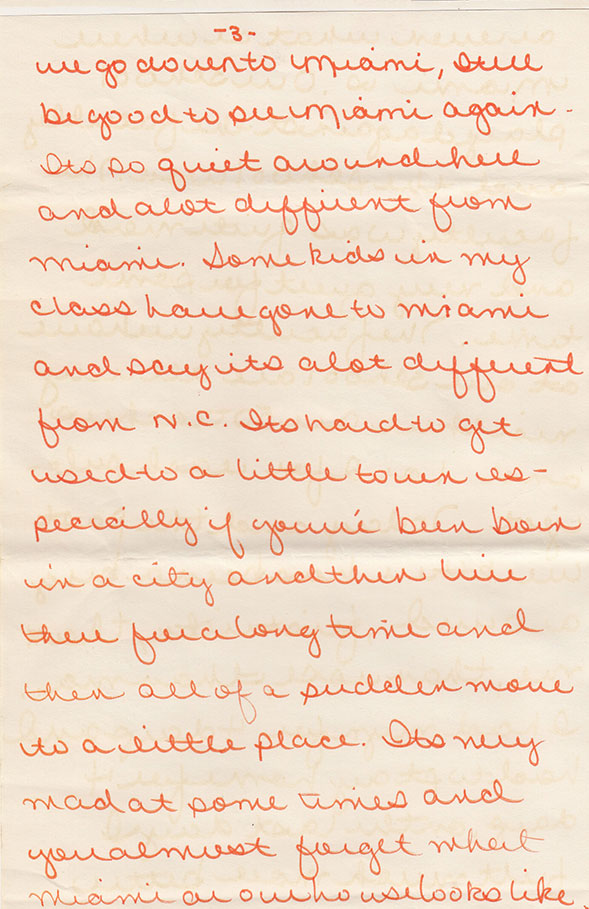 -3-
we go down to Miami, Itll
be good to see Miami again.
Its so quiet around here
and alot diffrent from
Miami. Some kids in my
class have gone to Miami
and say its alot different
from N.C. Its hard to get
used to a little town es-
pecially if you've been born
in a city and then live
there for a long time and
then all of a sudden move
to a little place. Its very
mad at some times and
you almost forget what
Miami or our house looks like.